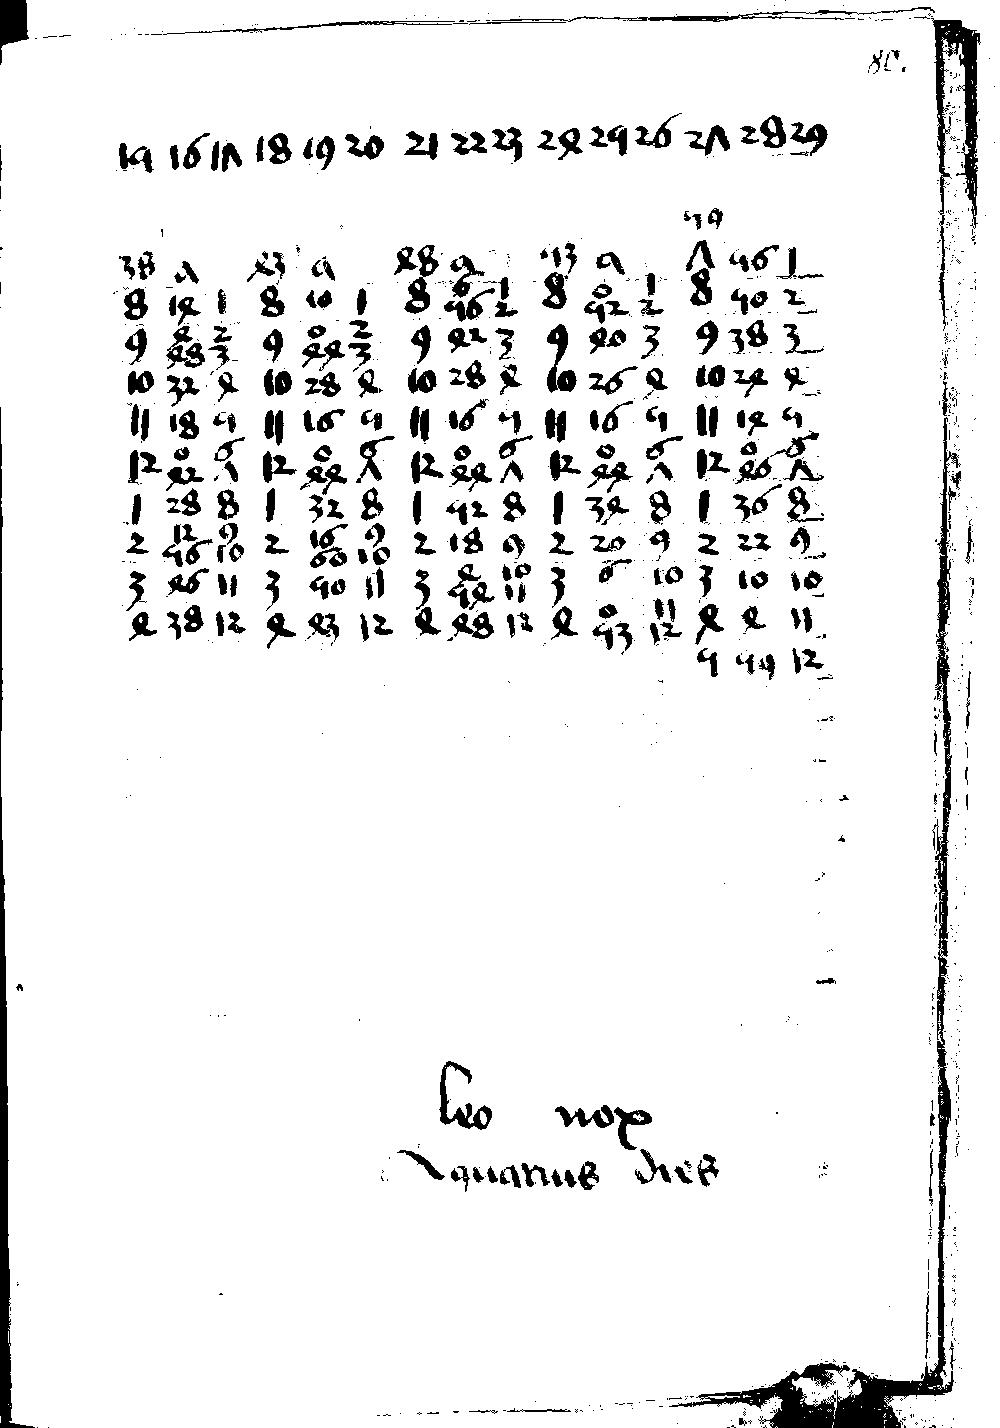 80.
15 16 17 18 19 20 21 22 23 24 25 26 27 28 29
59
38 5 43 5 48 5 53 5 7 56 1
6 1 0 1
8 14 1 8 10 1 8 56 2 8 52 2 8 50 2
4 2 0 2
9 48 3 9 44 3 9 42 3 9 40 3 9 38 3
10 32 4 10 28 4 10 28 4 10 26 4 10 24 4
11 18 5 11 16 5 11 16 5 11 16 5 11 14 5
0 6 0 6 0 6 0 6 0 6
12 42 7 12 44 7 12 44 7 12 44 7 12 46 7
1 28 8 1 32 8 1 52 8 1 34 8 1 36 8
12 9 16 9
2 56 10 2 60 10 2 18 9 2 20 9 2 22 9
4 10
3 46 11 3 50 11 3 54 11 3 6 10 3 10 10
0 11
4 38 12 4 43 12 4 48 12 4 53 12 4 4 11
5 59 12
leo nox
Aquarius dies